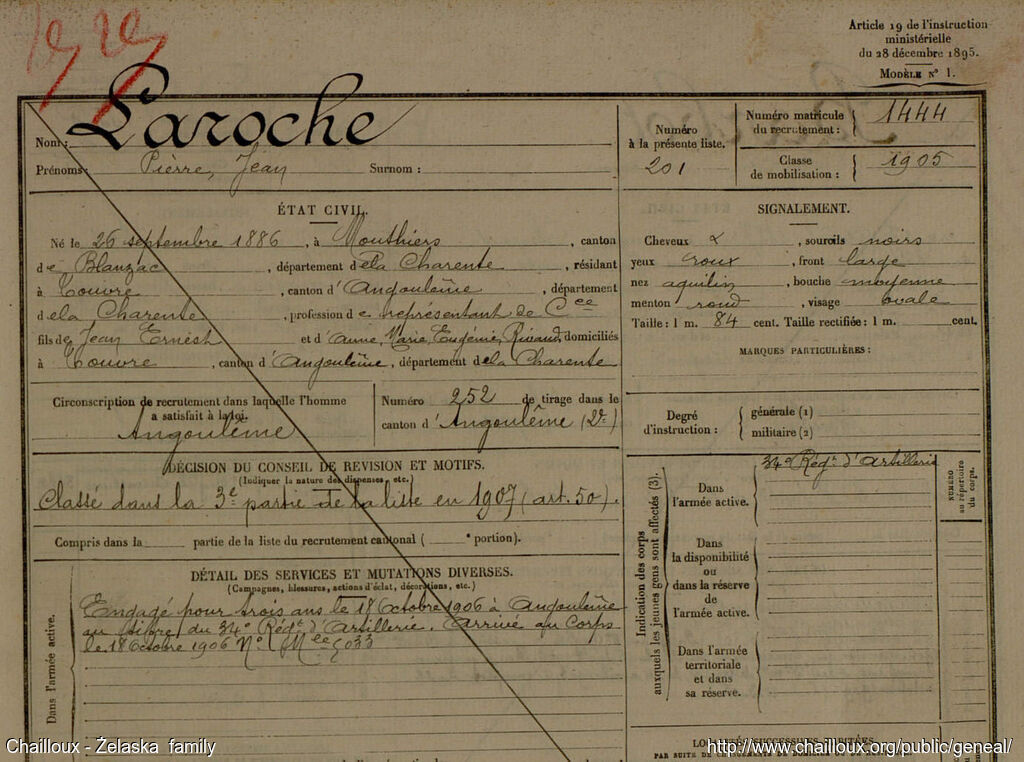 Article 19 de l'instruction
ministérielle
du 28 décembre 1895.
MODÈLE N° 1.
Nom : Laroche
Prénoms : Pierre, Jean Surnom :
Numéro
à la présente liste.
201
Numéro matricule
du recrutement : 1444
Classe
de mobilisation : 1905
ÉTAT CIVIL.
Né le 26 septembre 1886, à Mouthiers, canton
de Blanzac, département de la Charente, résidant
à Touvre, canton d'Angoulême, département
de la Charente, profession de représentant de Cce
fils de Jean Ernest et d'Anne, Marie, Eugénie, Rivaud, domiciliés
à Touvre, canton d'Angoulême, département de la Charente
SIGNALEMENT.
Cheveux &, sourcils noirs
yeux roux, front large
nez aquilin, bouche moyenne
menton rond, visage ovale
Taille : 1 m. 84 cent. Taille rectifiée : 1 m. cent.
MARQUES PARTICULIÈRES :
Circonscription de recrutement dans laquelle l'homme
a satisfait à la loi.
Angoulême
Numéro 252 de tirage dans le
canton d'Angoulême (2e)
Degré
d'instruction :
générale (1)
militaire (2)
DÉCISION DU CONSEIL DE REVISION ET MOTIFS.
(Indiquer la nature des dispenses, etc.)
Classé dans la 3e partie de la liste en 1907 (art. 50).
Compris dans la partie de la liste du recrutement cantonal ( e portion).
DÉTAIL DES SERVICES ET MUTATIONS DIVERSES.
(Campagnes, blessures, actions d'éclat, décorations, etc.)
Dans l'armée active.
Engagé pour trois ans le 18 Octobre 1906 à Angoulême
au titre du 34e Régt d'Artillerie. Arrivé au Corps
le 18 Octobre 1906 No Mle 5033
Indication des corps
auxquels les jeunes gens sont affectés (3).
Dans
l'armée active.
34e Régt d'Artillerie
NUMÉRO
au répertoire
du corps.
Dans
la disponibilité
ou
dans la réserve
de
l'armée active.
Dans l'armée
territoriale
et dans
sa réserve.
LOCALITÉS SUCCESSIVES HABITÉES
PAR SUITE DE CHANGEMENTS DE DOMICILE OU DE
Chailloux - Żelaska family
http://www.chailloux.org/public/geneal/